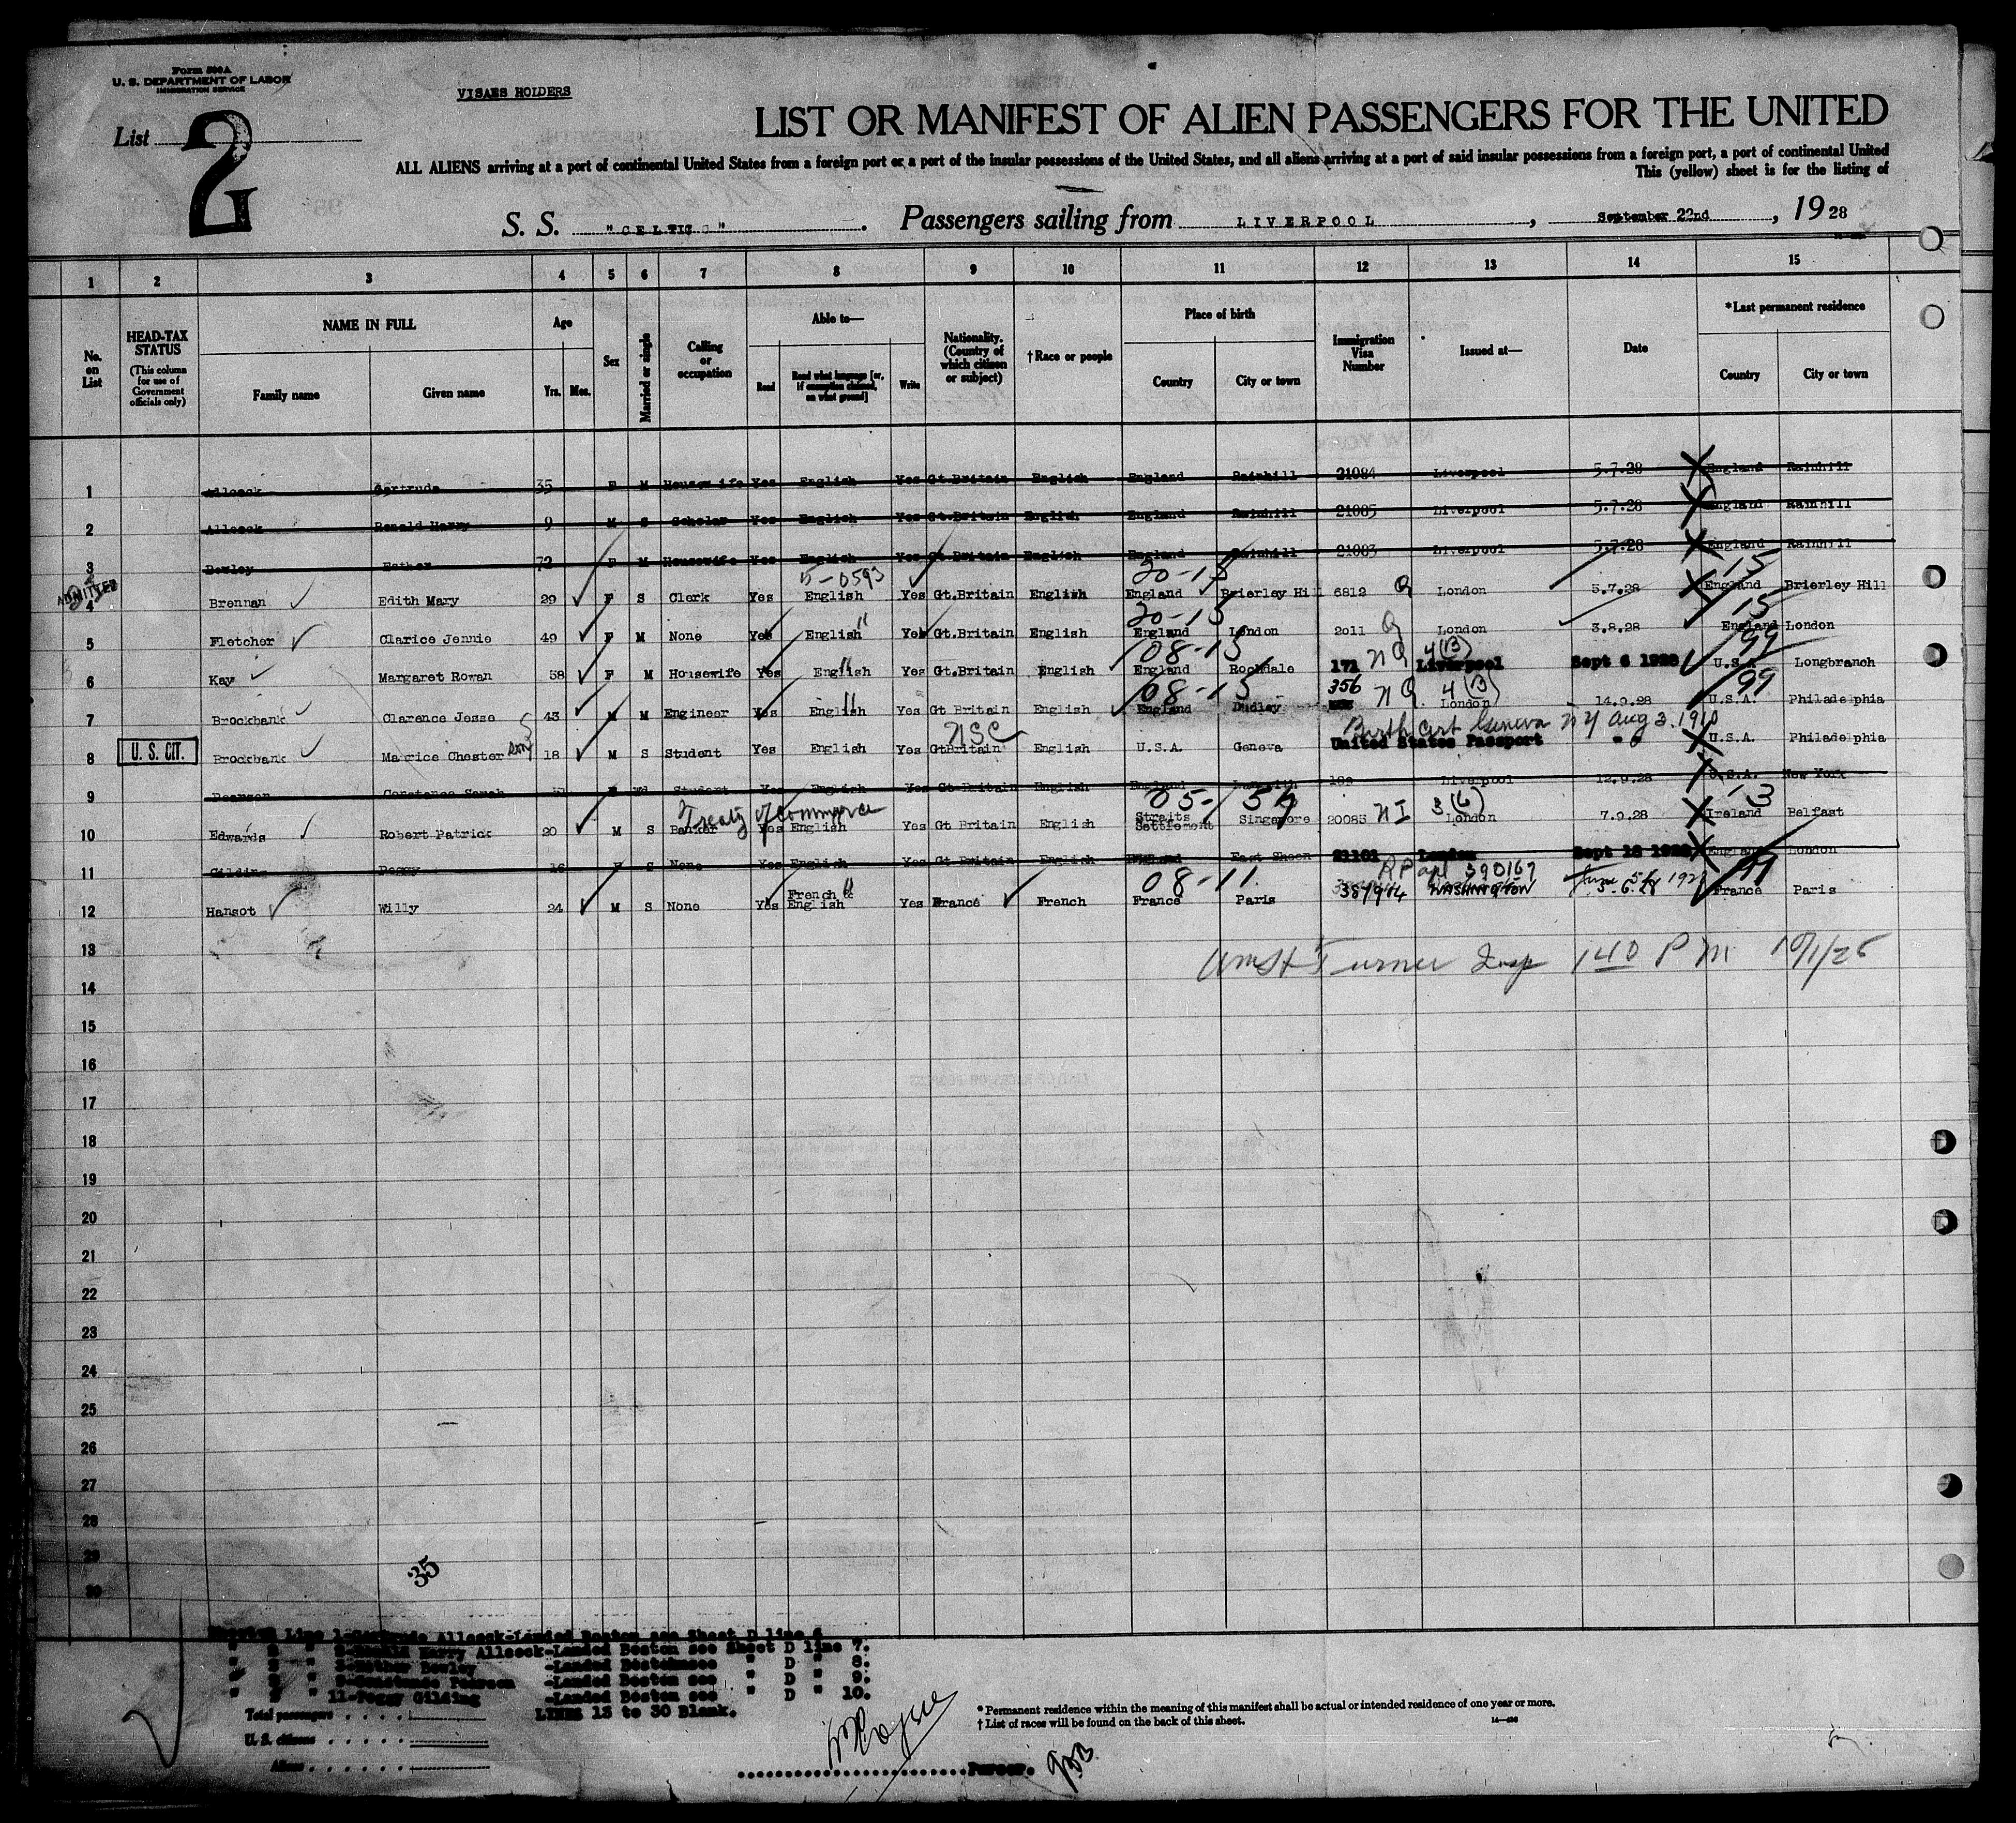 Form 500A
U. S. DEPARTMENT OF LABOR
IMMIGRATION SERVICE
VISAES HOLDERS
List 2
LIST OR MANIFEST OF ALIEN PASSENGERS FOR THE UNITED
ALL ALIENS arriving at a port of continental United States from a foreign port or a port of the insular possessions of the United States, and all aliens arriving at a port of said insular possessions from a foreign port, a port of continental United
This (yellow) sheet is for the listing of
S. S. "CELTIC" . Passengers sailing from LIVERPOOL , September 22nd , 1928
1 2 3 4 5 6 7 8 9 10 11 12 13 14 15
No. on List
HEAD-TAX STATUS (This column for use of Government officials only)
NAME IN FULL Family name Given name
Age Yrs. Mos.
Sex
Married or single
Calling or occupation
Able to— Read Read what language [or, if exemption claimed, on what ground] Write
Nationality. (Country of which citizen or subject)
† Race or people
Place of birth Country City or town
Immigration Visa Number
Issued at—
Date
*Last permanent residence Country City or town
1 Allcock Gertrude 35 F M Housewife Yes English Yes Gt.Britain English England Rainhill 21084 Liverpool 5.7.28 England Rainhill
2 Allcock Ronald Harry 9 M S Scholar Yes English Yes Gt.Britain English England Rainhill 21085 Liverpool 5.7.28 England Rainhill
3 Bewley Esther 72 F M Housewife Yes English Yes Gt.Britain English England Rainhill 21083 Liverpool 5.7.28 England Rainhill
ADMITTED
5-0593 20-15 15
4 Brennan Edith Mary 29 F S Clerk Yes English Yes Gt.Britain English England Brierley Hill 6812 Q London 5.7.28 England Brierley Hill
20-15 15
5 Fletcher Clarice Jennie 49 F M None Yes English Yes Gt.Britain English England London 2011 Q London 3.8.28 England London
08-15 99
6 Kay Margaret Rowan 58 F M Housewife Yes English Yes Gt.Britain English England Rochdale 171 NQ 4(B) Liverpool Sept 6 1928 U.S.A. Longbranch
08-15 99
7 Brockbank Clarence Jesse 43 M M Engineer Yes English Yes Gt Britain English England Dudley 356 NQ 4(B) London 14.9.28 U.S.A. Philadelphia
NSC Birth Cert Geneva N Y Aug 3. 1910
8 U. S. CIT. Brockbank Maurice Chester Son 18 M S Student Yes English Yes GtBritain English U.S.A. Geneva United States Passport U.S.A. Philadelphia
9 Pearson Constance Sarah Student Yes English Yes Gt Britain English England Liverpool 12.9.28 U.S.A. New York
Treaty of Commerce 05-54 13
10 Edwards Robert Patrick 20 M S Banker Yes English Yes Gt Britain English Straits Settlement Singapore 20085 NI 3(6) London 7.9.28 Ireland Belfast
11 Gilding Peggy 16 F S None Yes English Yes Gt Britain English England East Sheen 21101 London Sept 18 1928 England London
08-11 RP apl 390167 June 5th 1928 11
12 Hansot Willy 24 M S None Yes French & English Yes France French France Paris 387914 WASHINGTON 5.6.28 France Paris
13 Wm H Turner Insp 140 P M 10/1/28
14
15
16
17
18
19
20
21
22
23
24
25
26
27
28
29
30
35
Line 1-Gertrude Allcock-Landed Boston see Sheet D line 6
" 2 " 2-Ronald Harry Allcock-Landed Boston see Sheet D line 7.
" 2 " 3-Esther Bewley -Landed Boston see " D " 8.
" 2 " 9-Constance Pearson -Landed Boston see " D " 9.
" 2 " 11-Peggy Gilding -Landed Boston see " D " 10.
LINES 13 to 30 Blank.
Total passengers
U. S. citizens
Aliens
* Permanent residence within the meaning of this manifest shall be actual or intended residence of one year or more.
† List of races will be found on the back of this sheet.
Purser.